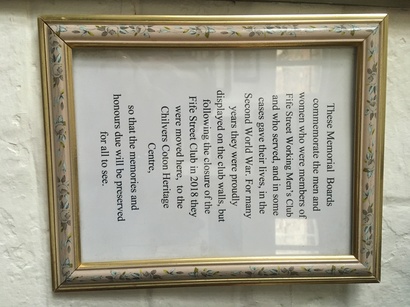 These Memorial Boards
commemorate the men and
women who were members of
Fife Street Working Men's Club
and who served, and in some
cases gave their lives, in the
Second World War. For many
years they were proudly
displayed on the club walls, but
following the closure of the
Fife Street Club in 2018 they
were moved here, to the
Chilvers Coton Heritage
Centre,
so that the memories and
honours due will be preserved
for all to see.